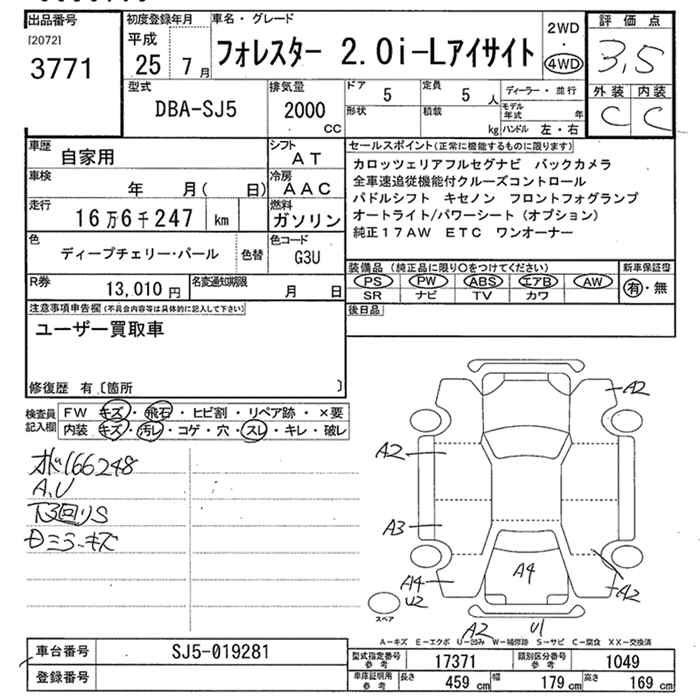 出品番号
[2072]
3771
初度登録年月
平成
25 7月
車名・グレード
フォレスター 2.0i-Lアイサイト
2WD
・
4WD
評価点
3,5
外装 内装
C C
型式
DBA-SJ5
排気量
2000
CC
ドア
5
定員
5 人
形状
積載
kg
ディーラー・並行
モデル年式 年
ハンドル 左・右
車歴
自家用
シフト
AT
車検
年 月( 日)
冷房
AAC
走行
16万6千247 km
燃料
ガソリン
色
ディープチェリー・パール
色替
色コード
G3U
R券
13,010 円
名変通知期限
月 日
セールスポイント(正常に機能するものに限ります)
カロッツェリアフルセグナビ バックカメラ
全車速追従機能付クルーズコントロール
パドルシフト キセノン フロントフォグランプ
オートライト/パワーシート(オプション)
純正17AW ETC ワンオーナー
装備品(純正品に限り○をつけてください)
PS PW ABS エアB AW
SR ナビ TV カワ
新車保証書
有・無
後日品
注意事項申告欄(不具合内容等は具体的に記入して下さい)
ユーザー買取車
修復歴 有〔箇所 〕
検査員
記入欄
FW キズ・飛石・ヒビ割・リペア跡・×要
内装 キズ・汚レ・コゲ・穴・スレ・キレ・破レ
166248
A,U
下回りS
ミラーキズ
A2
A2
A3
A4
U2
A4
A2
A2
U1
スペア
A-キズ E-エクボ U-凹み W-補修跡 S-サビ C-腐食 XX-交換済
車台番号
SJ5-019281
登録番号
型式指定番号
参考
17371
類別区分番号
参考
1049
車庫証明用
参考
長さ 459 cm
幅 179 cm
高さ 169 cm